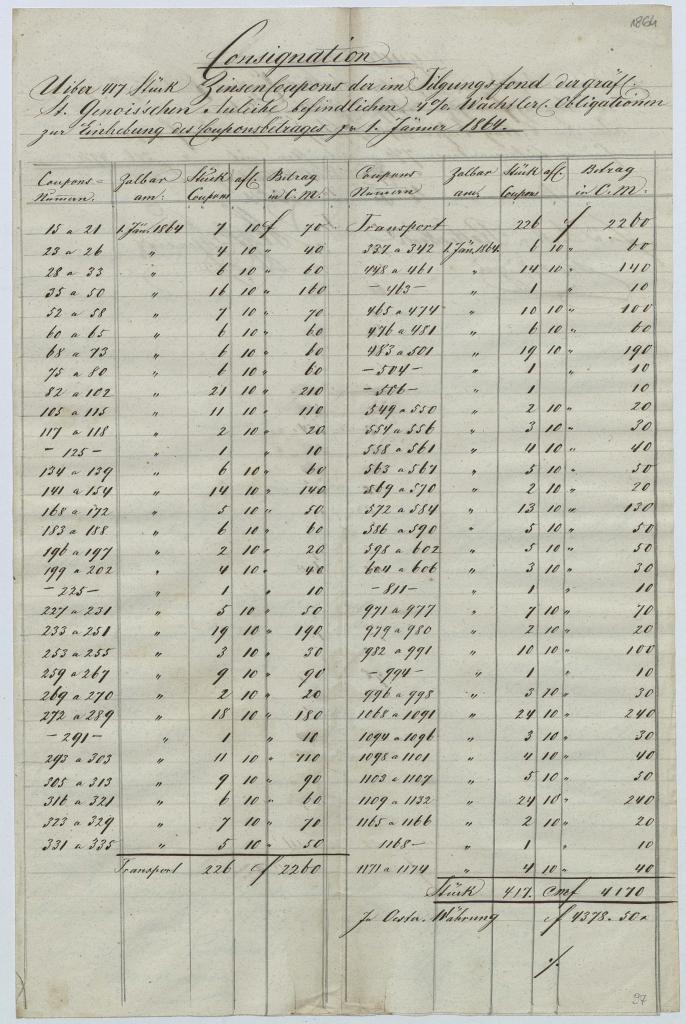 1864
Consignation
Uiber 417 Stück Zinsencoupons der im Tilgungsfond der gräfl.
St. Genois'schen Anleihe befindlichen 4% Wachtler'. Obligationen
zur Einhebung des Couponsbetrages pr 1. Jänner 1864.
Coupons= Zalbar Stück afl. Betrag Coupons Zalbar Stück afl. Betrag
Numern. am: Coupons in C.M. Numern am: Coupons in C.M.
15 a 21 1. Jän. 1864 7 10 f 70 Transport 226 f 2260
23 a 26 " 4 10 " 40 337 a 342 1. Jän. 1864. 6 10 " 60
28 a 33 " 6 10 " 60 448 a 461 " 14 10 " 140
35 a 50 " 16 10 " 160 - 463 - " 1 " 10
52 a 58 " 7 10 " 70 465 a 474 " 10 10 " 100
60 a 65 " 6 10 " 60 476 a 481 " 6 10 " 60
68 a 73 " 6 10 " 60 483 a 501 " 19 10 " 190
75 a 80 " 6 10 " 60 - 504 - " 1 " 10
82 a 102 " 21 10 " 210 - 506 - " 1 10
105 a 115 " 11 10 " 110 549 a 550 " 2 10 " 20
117 a 118 " 2 10 " 20 554 a 556 " 3 10 " 30
- 125 - " 1 " 10 558 a 561 " 4 10 " 40
134 a 139 " 6 10 " 60 563 a 567 " 5 10 " 50
141 a 154 " 14 10 " 140 569 a 570 " 2 10 " 20
168 a 172 " 5 10 " 50 572 a 584 " 13 10 " 130
183 a 188 " 6 10 " 60 586 a 590 " 5 10 " 50
196 a 197 " 2 10 " 20 598 a 602 " 5 10 " 50
199 a 202 " 4 10 " 40 604 a 606 " 3 10 " 30
- 225 - " 1 " 10 - 811 - " 1 " 10
227 a 231 " 5 10 " 50 971 a 977 " 7 10 " 70
233 a 251 " 19 10 " 190 979 a 980 " 2 10 " 20
253 a 255 " 3 10 " 30 982 a 991 " 10 10 " 100
259 a 267 " 9 10 " 90 - 994 - " 1 " 10
269 a 270 " 2 10 " 20 996 a 998 " 3 10 " 30
272 a 289 " 18 10 " 180 1068 a 1091 " 24 10 " 240
- 291 - " 1 " 10 1094 a 1096 " 3 10 " 30
293 a 303 " 11 10 " 110 1098 a 1101 " 4 10 " 40
305 a 313 " 9 10 " 90 1103 a 1107 " 5 10 " 50
316 a 321 " 6 10 " 60 1109 a 1132 " 24 10 " 240
323 a 329 " 7 10 " 70 1165 a 1166 " 2 10 " 20
331 a 335 " 5 10 " 50 1168 - " 1 " 10
Transport 226 f 2260 1171 a 1174 " 4 10 " 40
Stück 417. Cmf 4170
In Oester. Währung f 4378. 50
./.
97